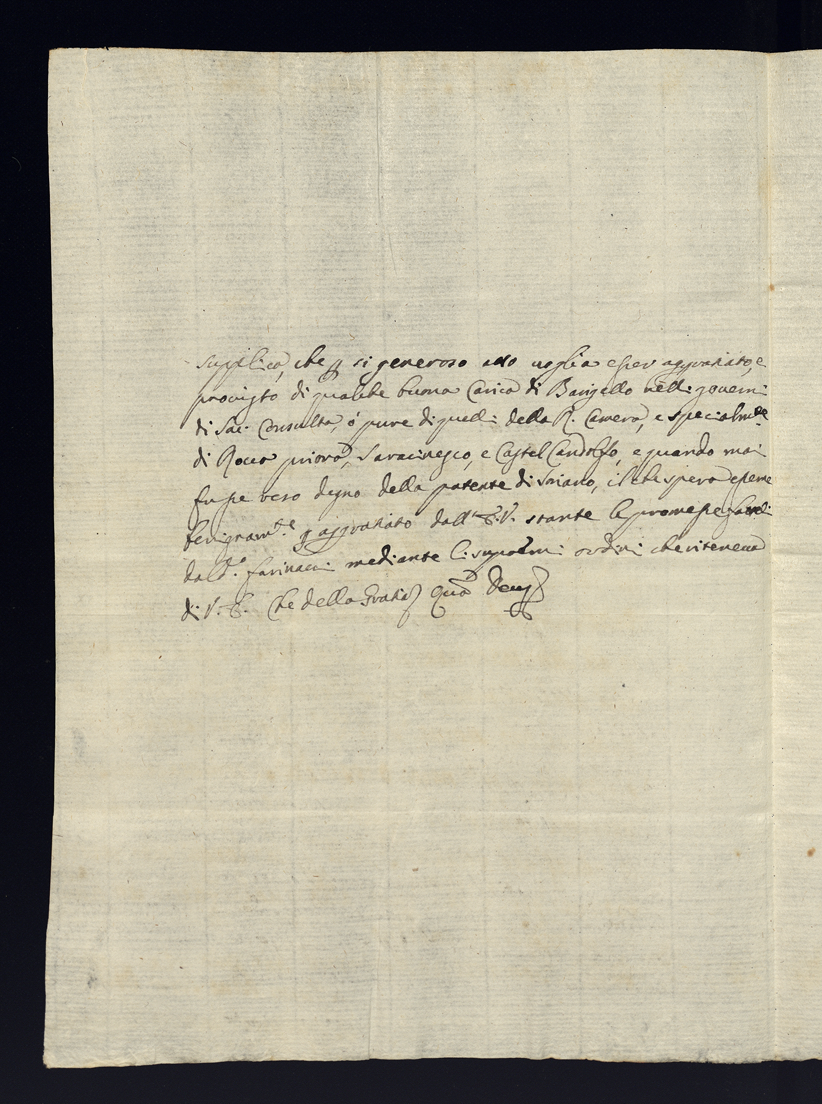 Supplica, che p si generoso atto voglia esser aggratiato, e
provisto di qualche buona Carica di Barigello nelli governi
di Sac. Consulta, ò pure di quelli della R. Camera, e specialm.te
di Rocca priora, Saracinesco, e Castel Candolfo, e quando mai
fusse reso degno della patente di Soriano, il che spera esserne
benignam.te aggratiato dall' E.V. stante le promesse
dal d.o farinacci mediante li supremi ordini che riteneva
di V. E. Che della Gratia Quam Deus